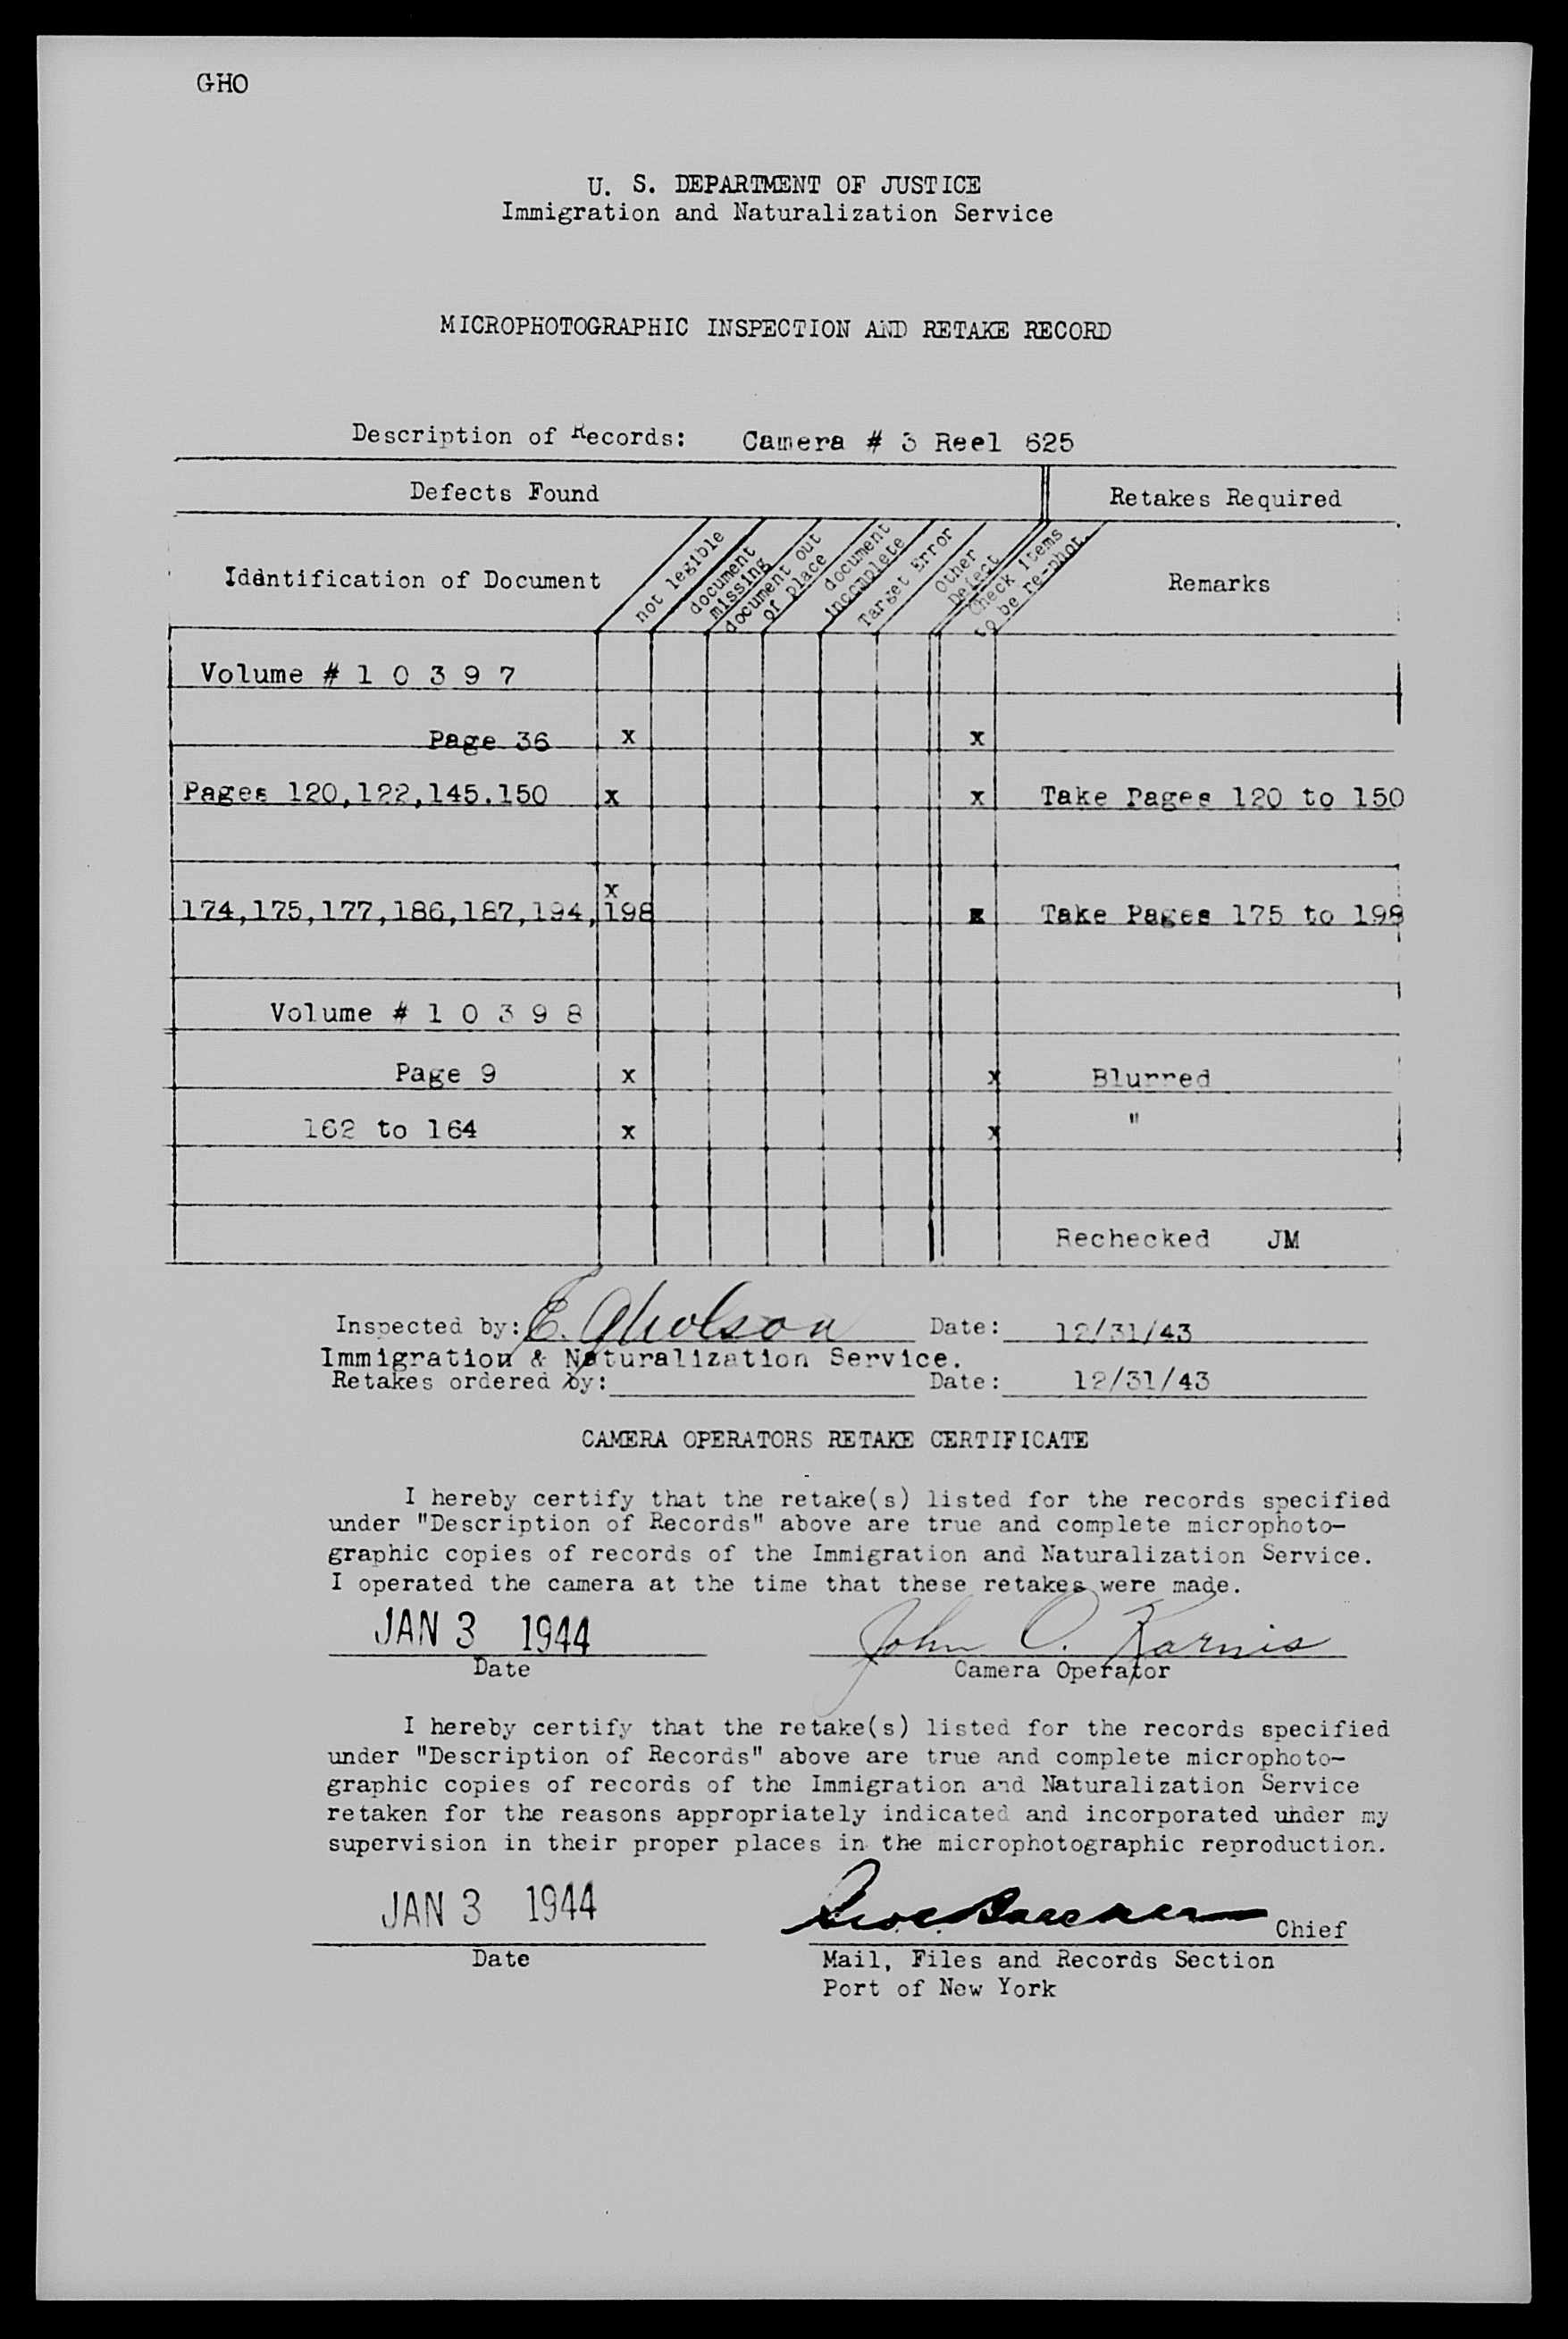 GHO
U. S. DEPARTMENT OF JUSTICE
Immigration and Naturalization Service
MICROPHOTOGRAPHIC INSPECTION AND RETAKE RECORD
Description of Records: Camera # 3 Reel 625
Defects Found Retakes Required
Iddntification of Document
not legible
document missing
document out of place
document incomplete
Target Error
Other Defect
Check items to be re-phot.
Remarks
Volume # 1 0 3 9 7
Page 36 x x
Pages 120,122,145.150 x x Take Pages 120 to 150
x
174,175,177,186,187,194,198 x Take Pages 175 to 198
Volume # 1 0 3 9 8
Page 9 x x Blurred
162 to 164 x x "
Rechecked JM
Inspected by: E. Gholson Date: 12/31/43
Immigration & Naturalization Service.
Retakes ordered by: Date: 12/31/43
CAMERA OPERATORS RETAKE CERTIFICATE
I hereby certify that the retake(s) listed for the records specified
under "Description of Records" above are true and complete microphoto-
graphic copies of records of the Immigration and Naturalization Service.
I operated the camera at the time that these retakes were made.
JAN 3 1944 John O. Karnis
Date Camera Operator
I hereby certify that the retake(s) listed for the records specified
under "Description of Records" above are true and complete microphoto-
graphic copies of records of the Immigration and Naturalization Service
retaken for the reasons appropriately indicated and incorporated under my
supervision in their proper places in the microphotographic reproduction.
JAN 3 1944 Chief
Date Mail, Files and Records Section
Port of New York